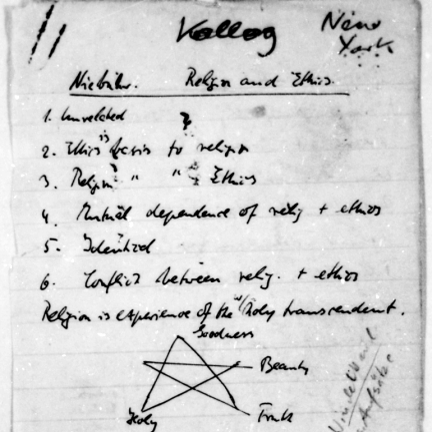 Kolleg New
York
Niebuhr. Religion and Ethics.
1. Unrelated ?
2. Ethics is basis to religion
3. Religion " " Ethics
4. Mutual dependence of relig + ethics
5. Identical
6. Conflict between relig. + ethics
Religion is experience of the holy transcendent.
Goodness
Beauty
Holy Truth